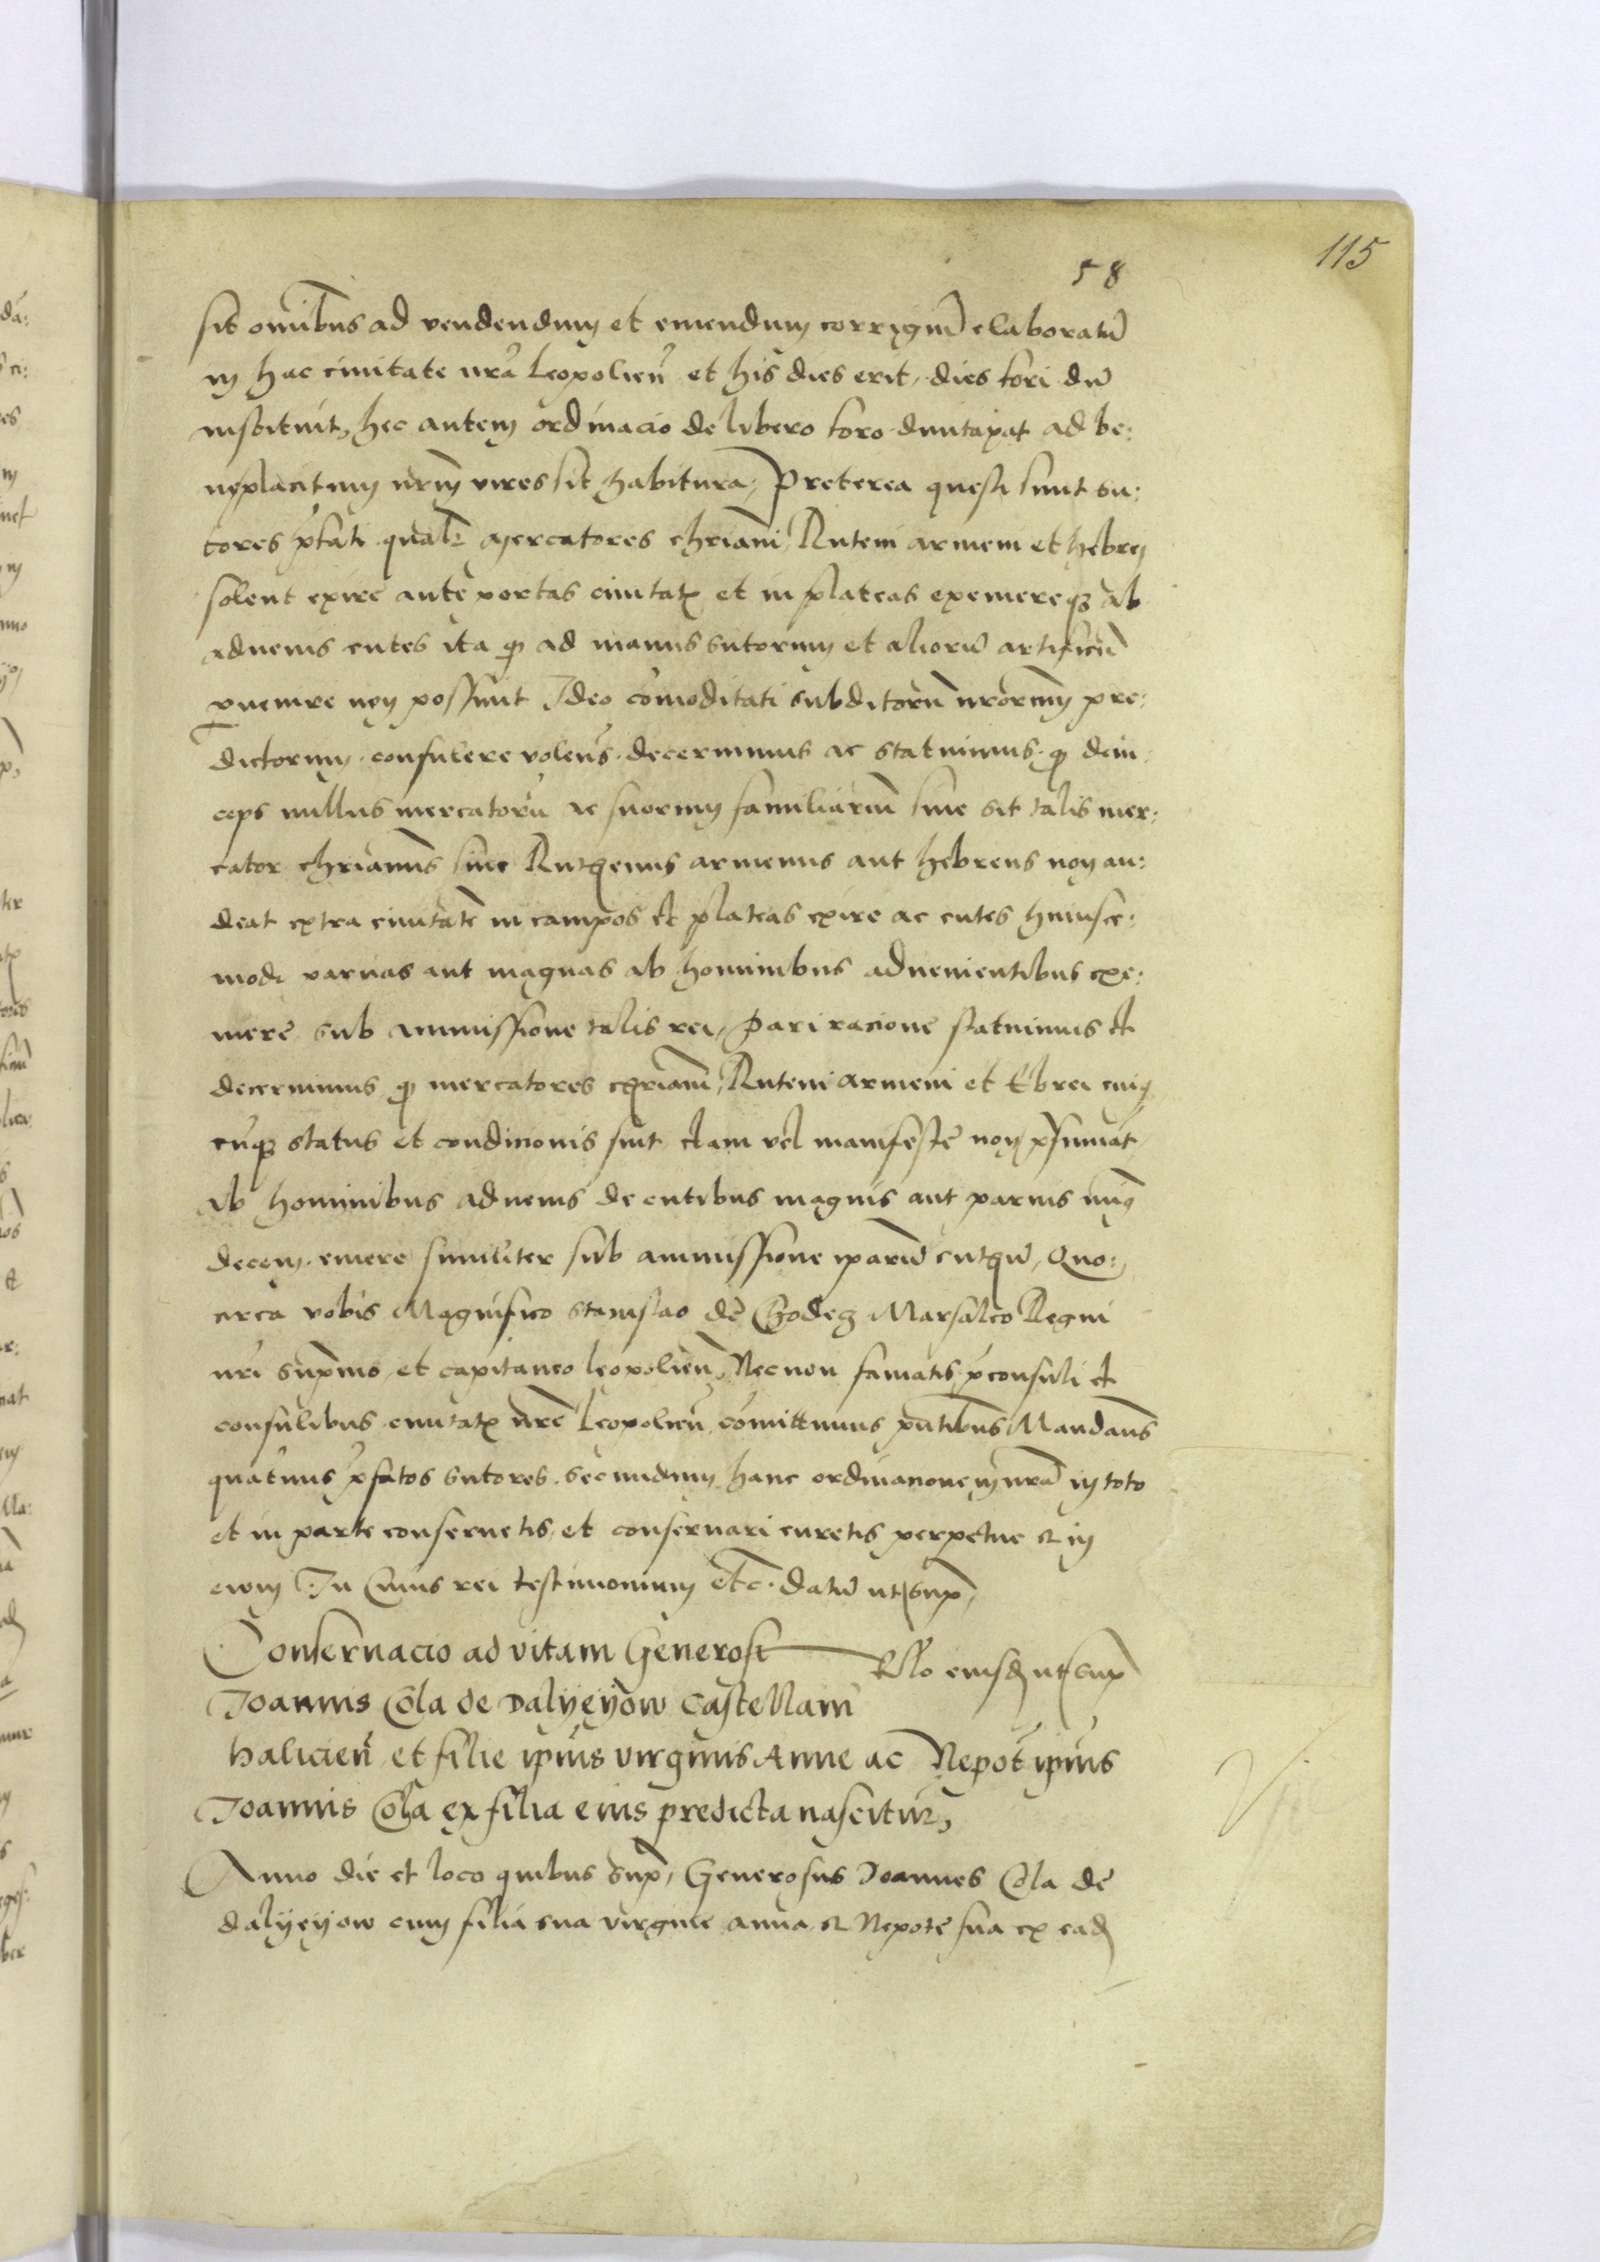 115
58
sit om̄ibus ad vendendum et emendum corrigiū elaboratū
in hac ciuitate nr̄a Leopolien̄ et his dies erit, dies fori dū
instituit, hec autem ordinacio de libero foro duntaxat ad be:
neplacitum nr̄m vires sit habitura, Preterea questi sunt su:
tores p̄fati qual̄r mercatores chr̄iani, Ruteni armeni et hebrei
solent exire ante portas ciuitatꝭ et in plateas exemereqꝫ ab
aduenis cutes ita ꝙ ad manus sutorum et aliorū artificū
ꝑuenire non possunt Ideo com̄oditati subditorū nr̄orum pre:
dictorum consulere volen̄s decernimus ac statuimus ꝙ dein
ceps nullus mercatorū ac suorum familiariū siue sit talis mer:
cator chr̄ianus siue Ruthenus armenus aut hebreus non au:
deat extra ciuitatē in campos et plateas exire ac cutes huiusce:
modi paruas aut magnas ab hominibus aduenientibus exe:
mere sub ammissione talis rei, Pari racione statuimus et
decernimus ꝙ mercatores chr̄iani, Ruteni armeni et Ebrei cuiꝰ
cūqꝫ status et condicionis sint clam vel manifeste non p̄sumāt
ab hominibus aduenis de cutibus magnis aut paruis
decem emere similiter sub ammissione ip̄arū cutiū, Quo:
circa vobis Magnifico Stanislao de Chodecz Marsalco Regni
nr̄i sup̄mo et capitaneo leopolien̄, Necnon famatis p̄consuli et
consulibus ciuitatꝭ nr̄e Leopolien̄ com̄ittimus p̄ntibus Mandan̄s
quatinus p̄fatos sutores secundum hanc ordinacionem nr̄ā in toto
et in parte conseruetis et conseruari curetis perpetue et in
ewm In Cuius rei testimonium etc̄. datū ut sup̄
Conseruacio ad vitam Generosi
Rl̄o eiusdē ut sup̄
Ioannis Cola de Dalyeyow Castellani
halicien̄ et filie ip̄ius virginis Anne ac Nepot̄ ip̄ius
Ioannis Cola ex filia eius predicta nascitur,
Anno die et loco quibus sup̄, Generosus Ioannes Cola de
dalyeyow cum filia sua virgine anna et Nepote sua ex eadē